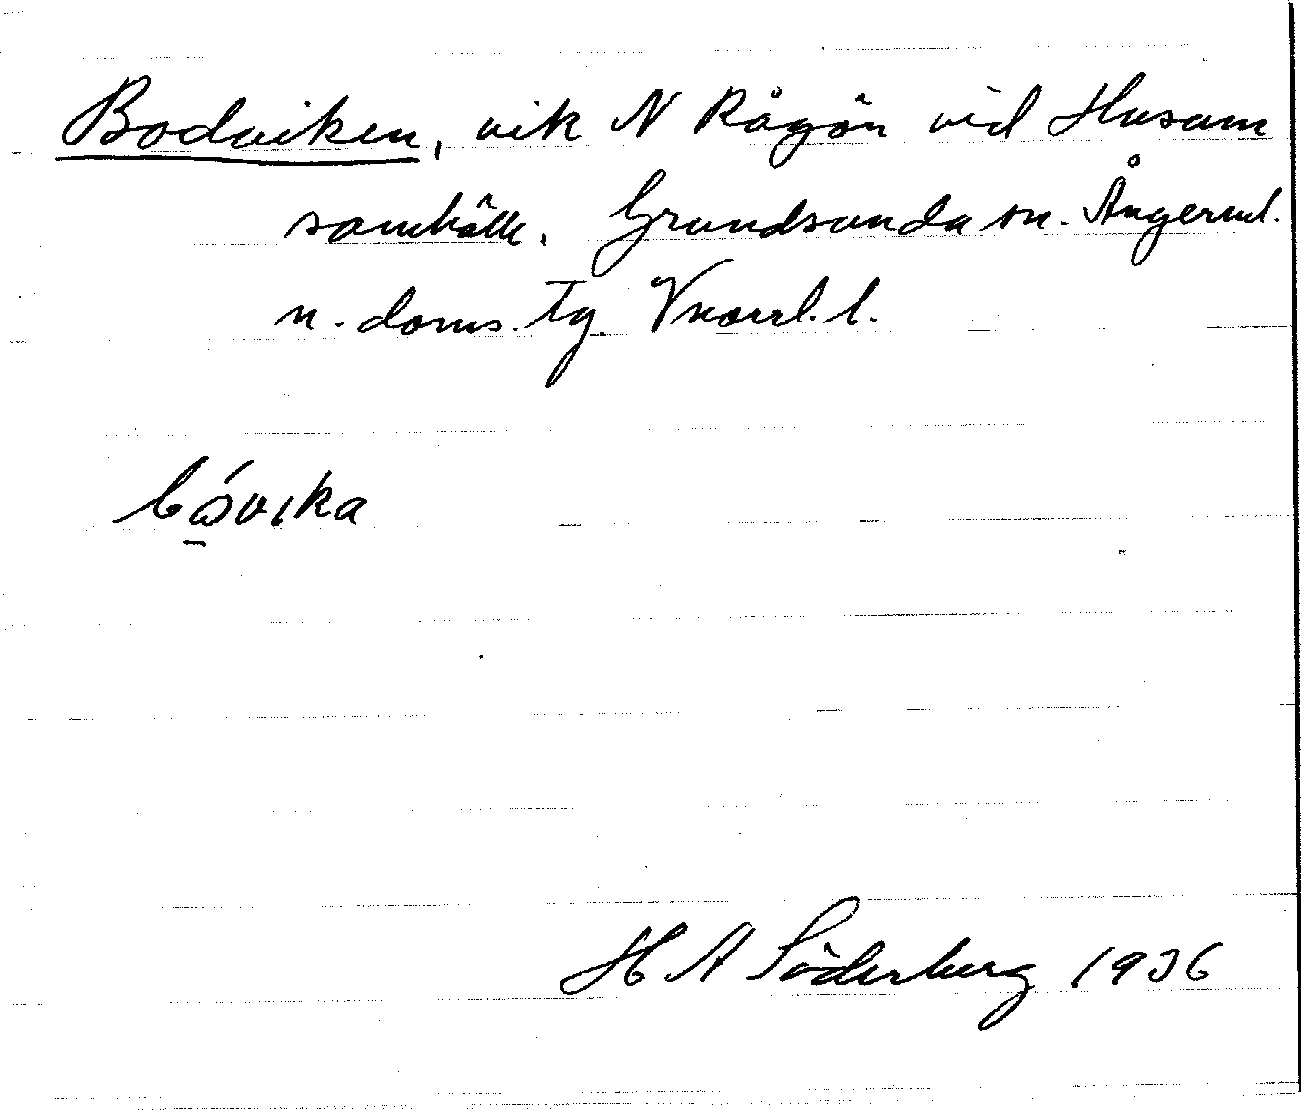 Bodviken, vik N Rågön vid Husum
samhälle. Grundsunda sn. Ångerml.
n. doms. tg. Vnorrl. l.
bώvika
H A Söderberg 1936